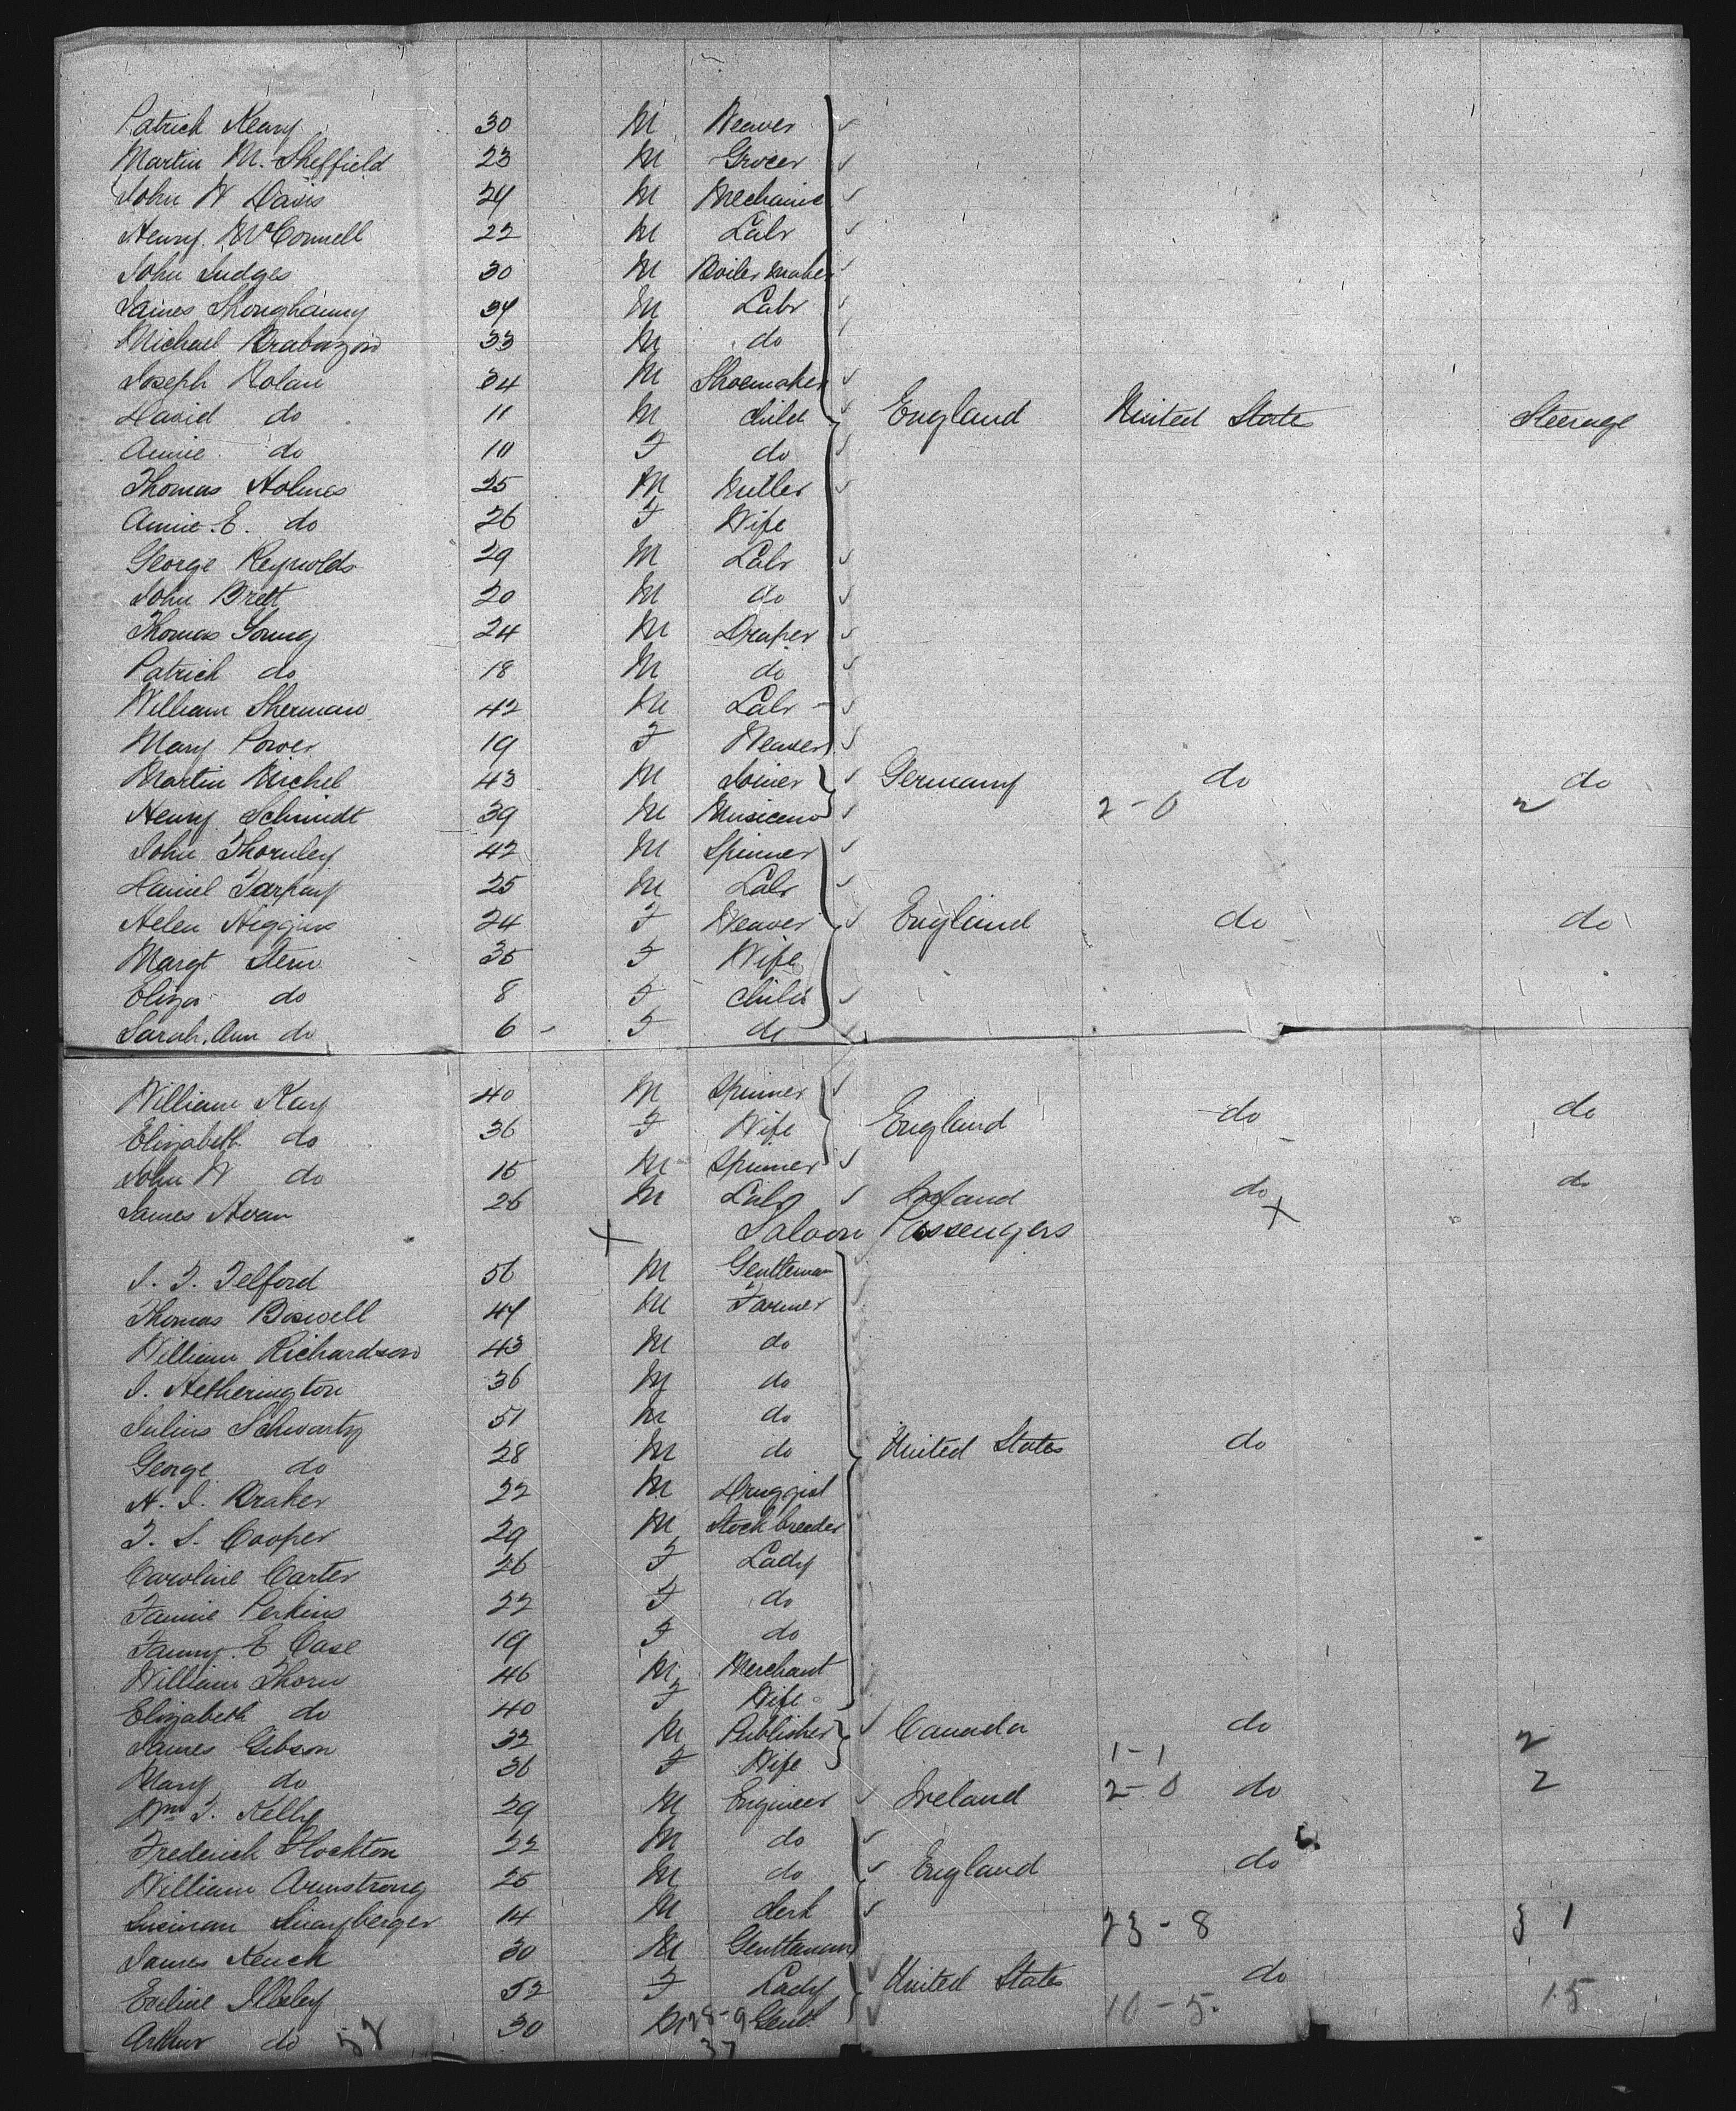 Patrick Neary 30 M Weaver
Martin M. Sheffield 23 M Grocer
John W Davis 24 M Mechanic
Henry McConnell 22 M Labr
John Judges 30 M Boiler Maker
James 34 M Labr
Michael Brabazon 33 M do
Joseph Nolan 34 M Shoemaker
David do 11 M child England United States Steerage
Annie do 10 F do
Thomas Holmes 25 M
Annie E. do 26 F Wife
George Reynolds 29 M Labr
John Brett 20 M do
Thomas Young 24 M Draper
Patrick do 18 M do
William Sherman 42 M Labr
Mary Power 19 F Weaver
Martin Michel 43 M Joiner Germany do do
Henry Schmidt 39 M Musician 2-0 2
John Thornley 42 M Spinner
Daniel Tarpay 25 M Labr
Helen Higgins 24 F Weaver England do do
Margt Stern 35 F Wife
Eliza do 8 F child
Sarah Ann do 6 F do
William Kay 40 M Spinner
Elizabeth do 36 F Wife England do do
John W do 15 M Spinner
James 26 M Labr Ireland do do
x Saloon Passengers x
J. T. Telford 56 M Gentleman
Thomas Boswell 44 M Farmer
William Richardson 43 M do
J. Hetherington 36 M do
Julius Schwartz 51 M do
George do 28 M do United States do
H. J. Braker 22 M Druggist
T. S. Cooper 29 M Stock breeder
Caroline Carter 26 F Lady
Fannie Perkins 22 F do
Fanny E Case 19 F do
William Thorn 46 M Merchant
Elizabeth do 40 F Wife
James Gibson 32 M Publisher Canada do 2
Mary do 36 F Wife 1-1
Wm J. Kelly 29 M Engineer Ireland 2-0 do 2
Frederick Stockton 22 M do
William Armstrong 25 M do England do
14 M clerk
James Kenck 30 M Gentleman 23-8 31
Eveline Illsley 52 F Lady United States do
Arthur do 57 30 M 28-9 Gent. 10-5. 15
37